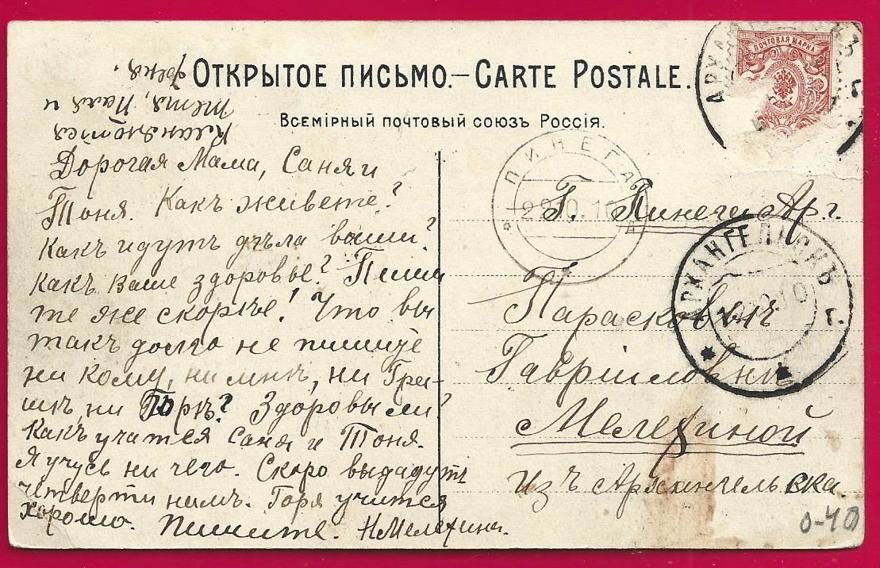 ОТКРЫТОЕ ПИСЬМО.—CARTE POSTALE.
Всемірный почтовый союзъ Россія.
ПОЧТОВАЯ МАРКА
Кланяются
тетя, Паля и
Дорогая Мама, Саня и
Тоня. Какъ живете?
Какъ идутъ дѣла ваши?
Какъ Ваше здоровье? Пиши
те же скорѣе! Что вы
такъ долго не пишите
ни кому, ни мнѣ, ни Гри-
шѣ, ни Горѣ? Здоровы ли?
Какъ учатся Саня и Тоня.
Я учусь ни чего. Скоро выдадутъ
четверти намъ. Горя учится
хорошо. Пишите. Н Мелехина.
ПИНЕГА
29.10.10
Г. Пинега Арг.
АРХАНГЕЛЬСКЪ
Г.
Парасковьѣ
Гавріиловнѣ
Мелехиной
Изъ Архангельска
0-40